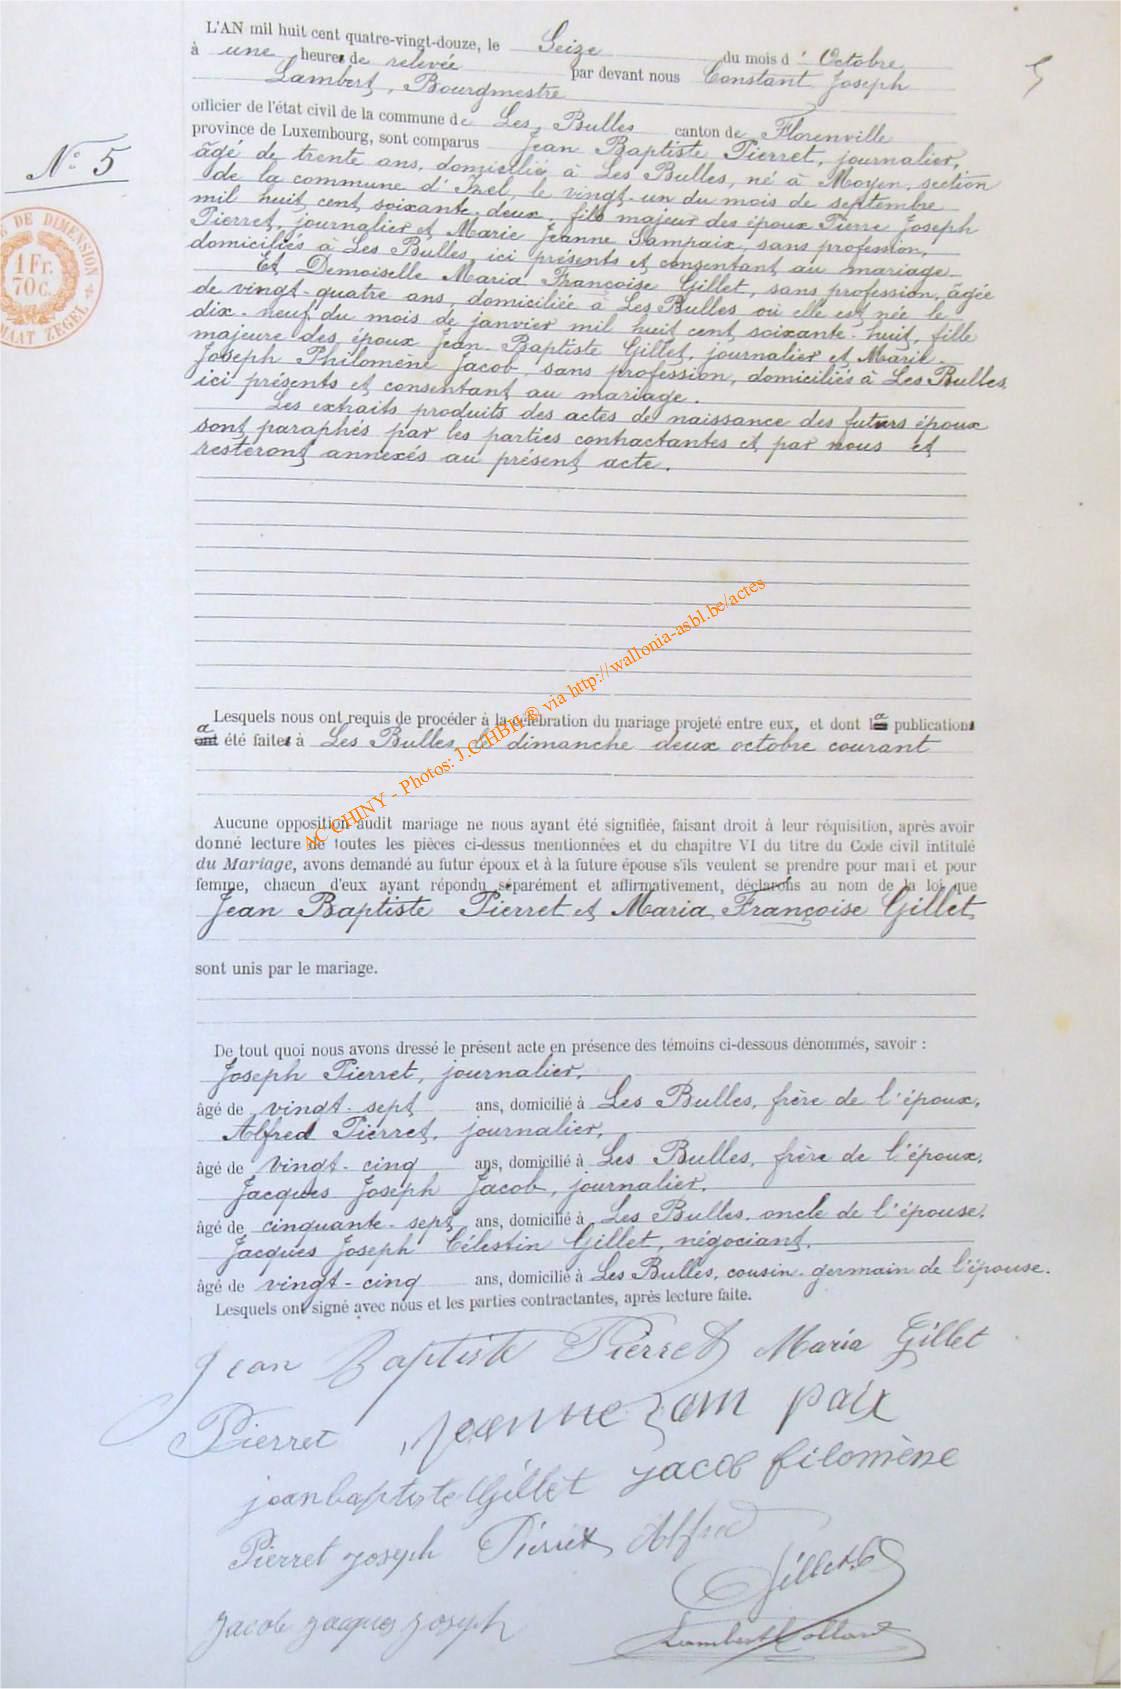 L'AN mil huit cent quatre-vingt-douze, le Seize du mois d'Octobre
à une heures de relevée par devant nous Constant Joseph
Lambert, Bourgmestre
officier de l'état civil de la commune de Les Bulles canton de Florenville
province de Luxembourg, sont comparus Jean Baptiste Pierret, journalier,
âgé de trente ans, domicilié à Les Bulles, né à Moyen, section
de la commune d'Izel, le vingt-un du mois de septembre
mil huit cent soixante-deux, fils majeur des époux Pierre Joseph
Pierret, journalier et Marie Jeanne Sampaix, sans profession,
domiciliés à Les Bulles, ici présents et consentant au mariage.
Et Demoiselle Maria Françoise Gillet, sans profession, âgée
de vingt-quatre ans, domiciliée à Les Bulles où elle est née le
dix-neuf du mois de janvier mil huit cent soixante-huit, fille
majeure des époux Jean-Baptiste Gillet, journalier et Marie-
Joseph Philomène Jacob, sans profession, domiciliés à Les Bulles,
ici présents et consentant au mariage.
Les extraits produits des actes de naissance des futurs époux
sont paraphés par les parties contractantes et par nous et
resteront annexés au présent acte.
Lesquels nous ont requis de procéder à la célébration du mariage projeté entre eux, et dont la publication
a été faite à Les Bulles, le dimanche deux octobre courant
Aucune opposition audit mariage ne nous ayant été signifiée, faisant droit à leur réquisition, après avoir
donné lecture de toutes les pièces ci-dessus mentionnées et du chapitre VI du titre du Code civil intitulé
du Mariage, avons demandé au futur époux et à la future épouse s'ils veulent se prendre pour mari et pour
femme, chacun d'eux ayant répondu séparément et affirmativement, déclarons au nom de la loi que
Jean Baptiste Pierret et Maria Françoise Gillet
sont unis par le mariage.
De tout quoi nous avons dressé le présent acte en présence des témoins ci-dessous dénommés, savoir :
Joseph Pierret, journalier,
âgé de vingt-sept ans, domicilié à Les Bulles, frère de l'époux,
Alfred Pierret, journalier,
âgé de vingt-cinq ans, domicilié à Les Bulles, frère de l'époux,
Jacques Joseph Jacob, journalier,
âgé de cinquante-sept ans, domicilié à Les Bulles, oncle de l'épouse,
Jacques Joseph Célestin Gillet, négociant,
âgé de vingt-cinq ans, domicilié à Les Bulles, cousin-germain de l'épouse.
Lesquels ont signé avec nous et les parties contractantes, après lecture faite.
Jean Baptiste Pierret Maria Gillet
Pierret Jeanne Sam paix
jean baptiste Gillet jacob filomène
Pierret joseph Pierret Alfred
Gillet
Jacob Jacques Joseph Lambert Collard
N° 5
5
DE DIMENSION
1 Fr.
70 C.
MAAT ZEGEL
AC CHINY - Photos: J.C.HBH® via http://wallonia-asbl.be/actes